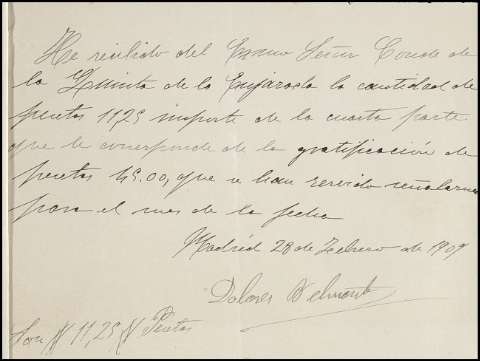 He recibido del Exmo Señor Conde de
la Quinta de la Enjarada la cantidad de
pesetas 11,25 importe de la cuarta parte
que le corresponde de la gratificación de
pesetas 45.00, que se han servido señalarme
para el mes de la fecha
Madrid 28 de Febrero de 1909
Dolores Belmonte
Son # 11,25 # Pesetas